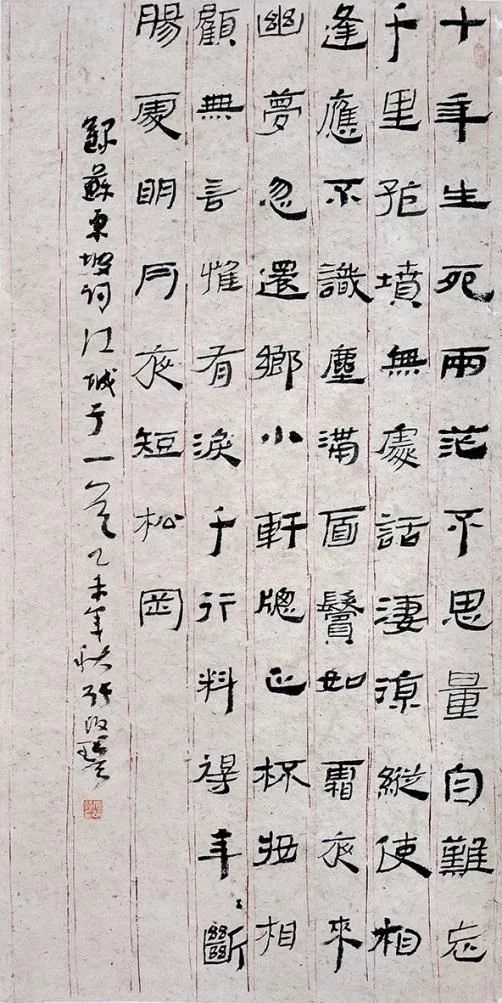 十年生死兩茫不思量自難忘
千里孤墳無處話淒涼縱使相
逢應不識塵滿面鬢如霜夜來
幽夢忽還鄉小軒牕正梳妝相
顧無言惟有淚千行料得年〻斷
腸處明月夜短松岡
錄蘇東坡詞江城子一首乙未年秋張改琴